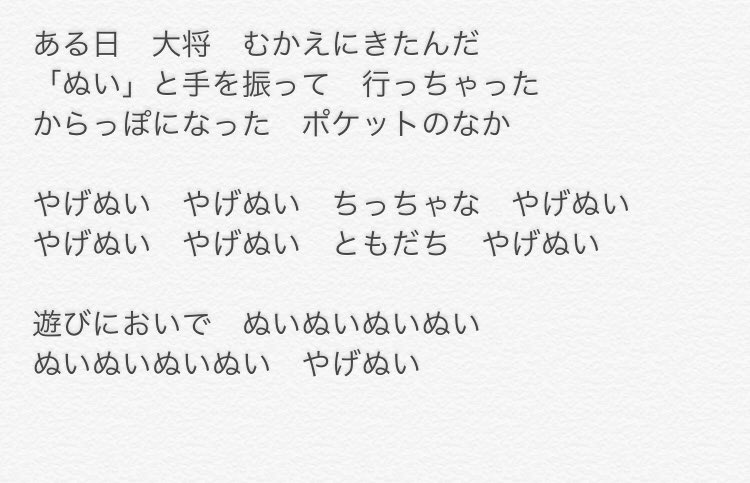 ある日　大将　むかえにきたんだ
「ぬい」と手を振って　行っちゃった
からっぽになった　ポケットのなか
やげぬい　やげぬい　ちっちゃな　やげぬい
やげぬい　やげぬい　ともだち　やげぬい
遊びにおいで　ぬいぬいぬいぬい
ぬいぬいぬいぬい　やげぬい